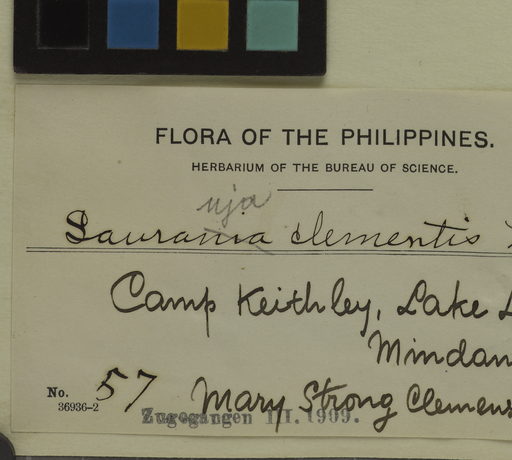 FLORA OF THE PHILIPPINES.
HERBARIUM OF THE BUREAU OF SCIENCE.
uja
Saurania clementis
Camp Keithley, Lake L
Mindan
No. 57 Mary Strong Clemens
36936-2
Zugegangen III. 1909.